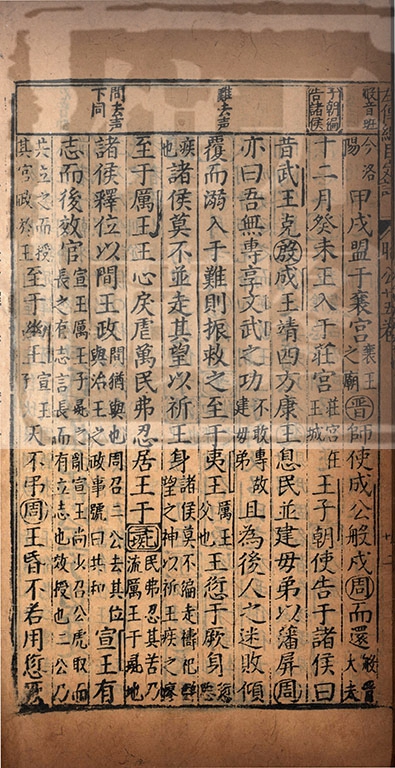 般音班
子朝徧告諸侯
難去声
間去声下同
今洛陽甲戌盟于襄宮襄王之廟晉師使成公般戍周而還般晉大夫
十二月癸未王入于莊宮莊宮在王城王子朝使告于諸侯曰
昔武王克殷成王靖四方康王息民並建母弟以藩屏周
亦曰吾無專享文武之功不敢專故建母弟且為後人之迷敗傾
覆而溺入于難則振救之至于夷王厲王父也王愆于厥身愆
疾也諸侯莫不並走其望以祈王身諸侯莫不徧走禱祀望之神以祈王疾之瘳
至于厲王王心戾虐萬民弗忍居王于彘民弗忍其苦乃流厲王于彘地
諸侯釋位以間王政間猶與也周召二公去其位與治王之政事號曰共和宣王有
志而後效官宣王厲王子彘之亂宣王尚少召公虎取而長之有志言長而有立志也效授也二公乃
共立之而授其官政於王至于幽王宣王子天不弔周王昏不若用愆厥